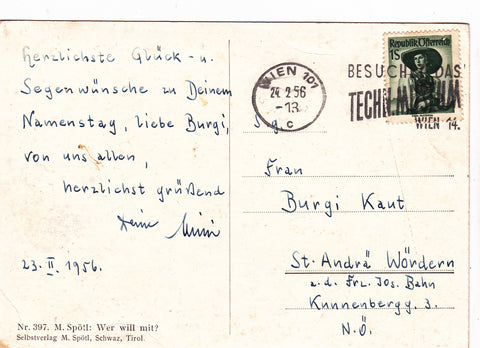 herzlichste Glück- u.
Segenwünsche zu Deinem
Namenstag, liebe Burgi,
von uns allen,
herzlichst grüßend
Deine Mimi
23. II. 1956.
Nr. 397. M. Spötl: Wer will mit?
Selbstverlag M. Spötl, Schwaz, Tirol.
WIEN 101
24. 2. 56
-13
c
BESUCHT DAS
TECHN. MUSEUM
WIEN 14.
Republik Österreich
1S
Sg.
Frau
Burgi Kaut
St. Andrä Wördern
a. d. Frz. Jos. Bahn
3.
N.Ö.